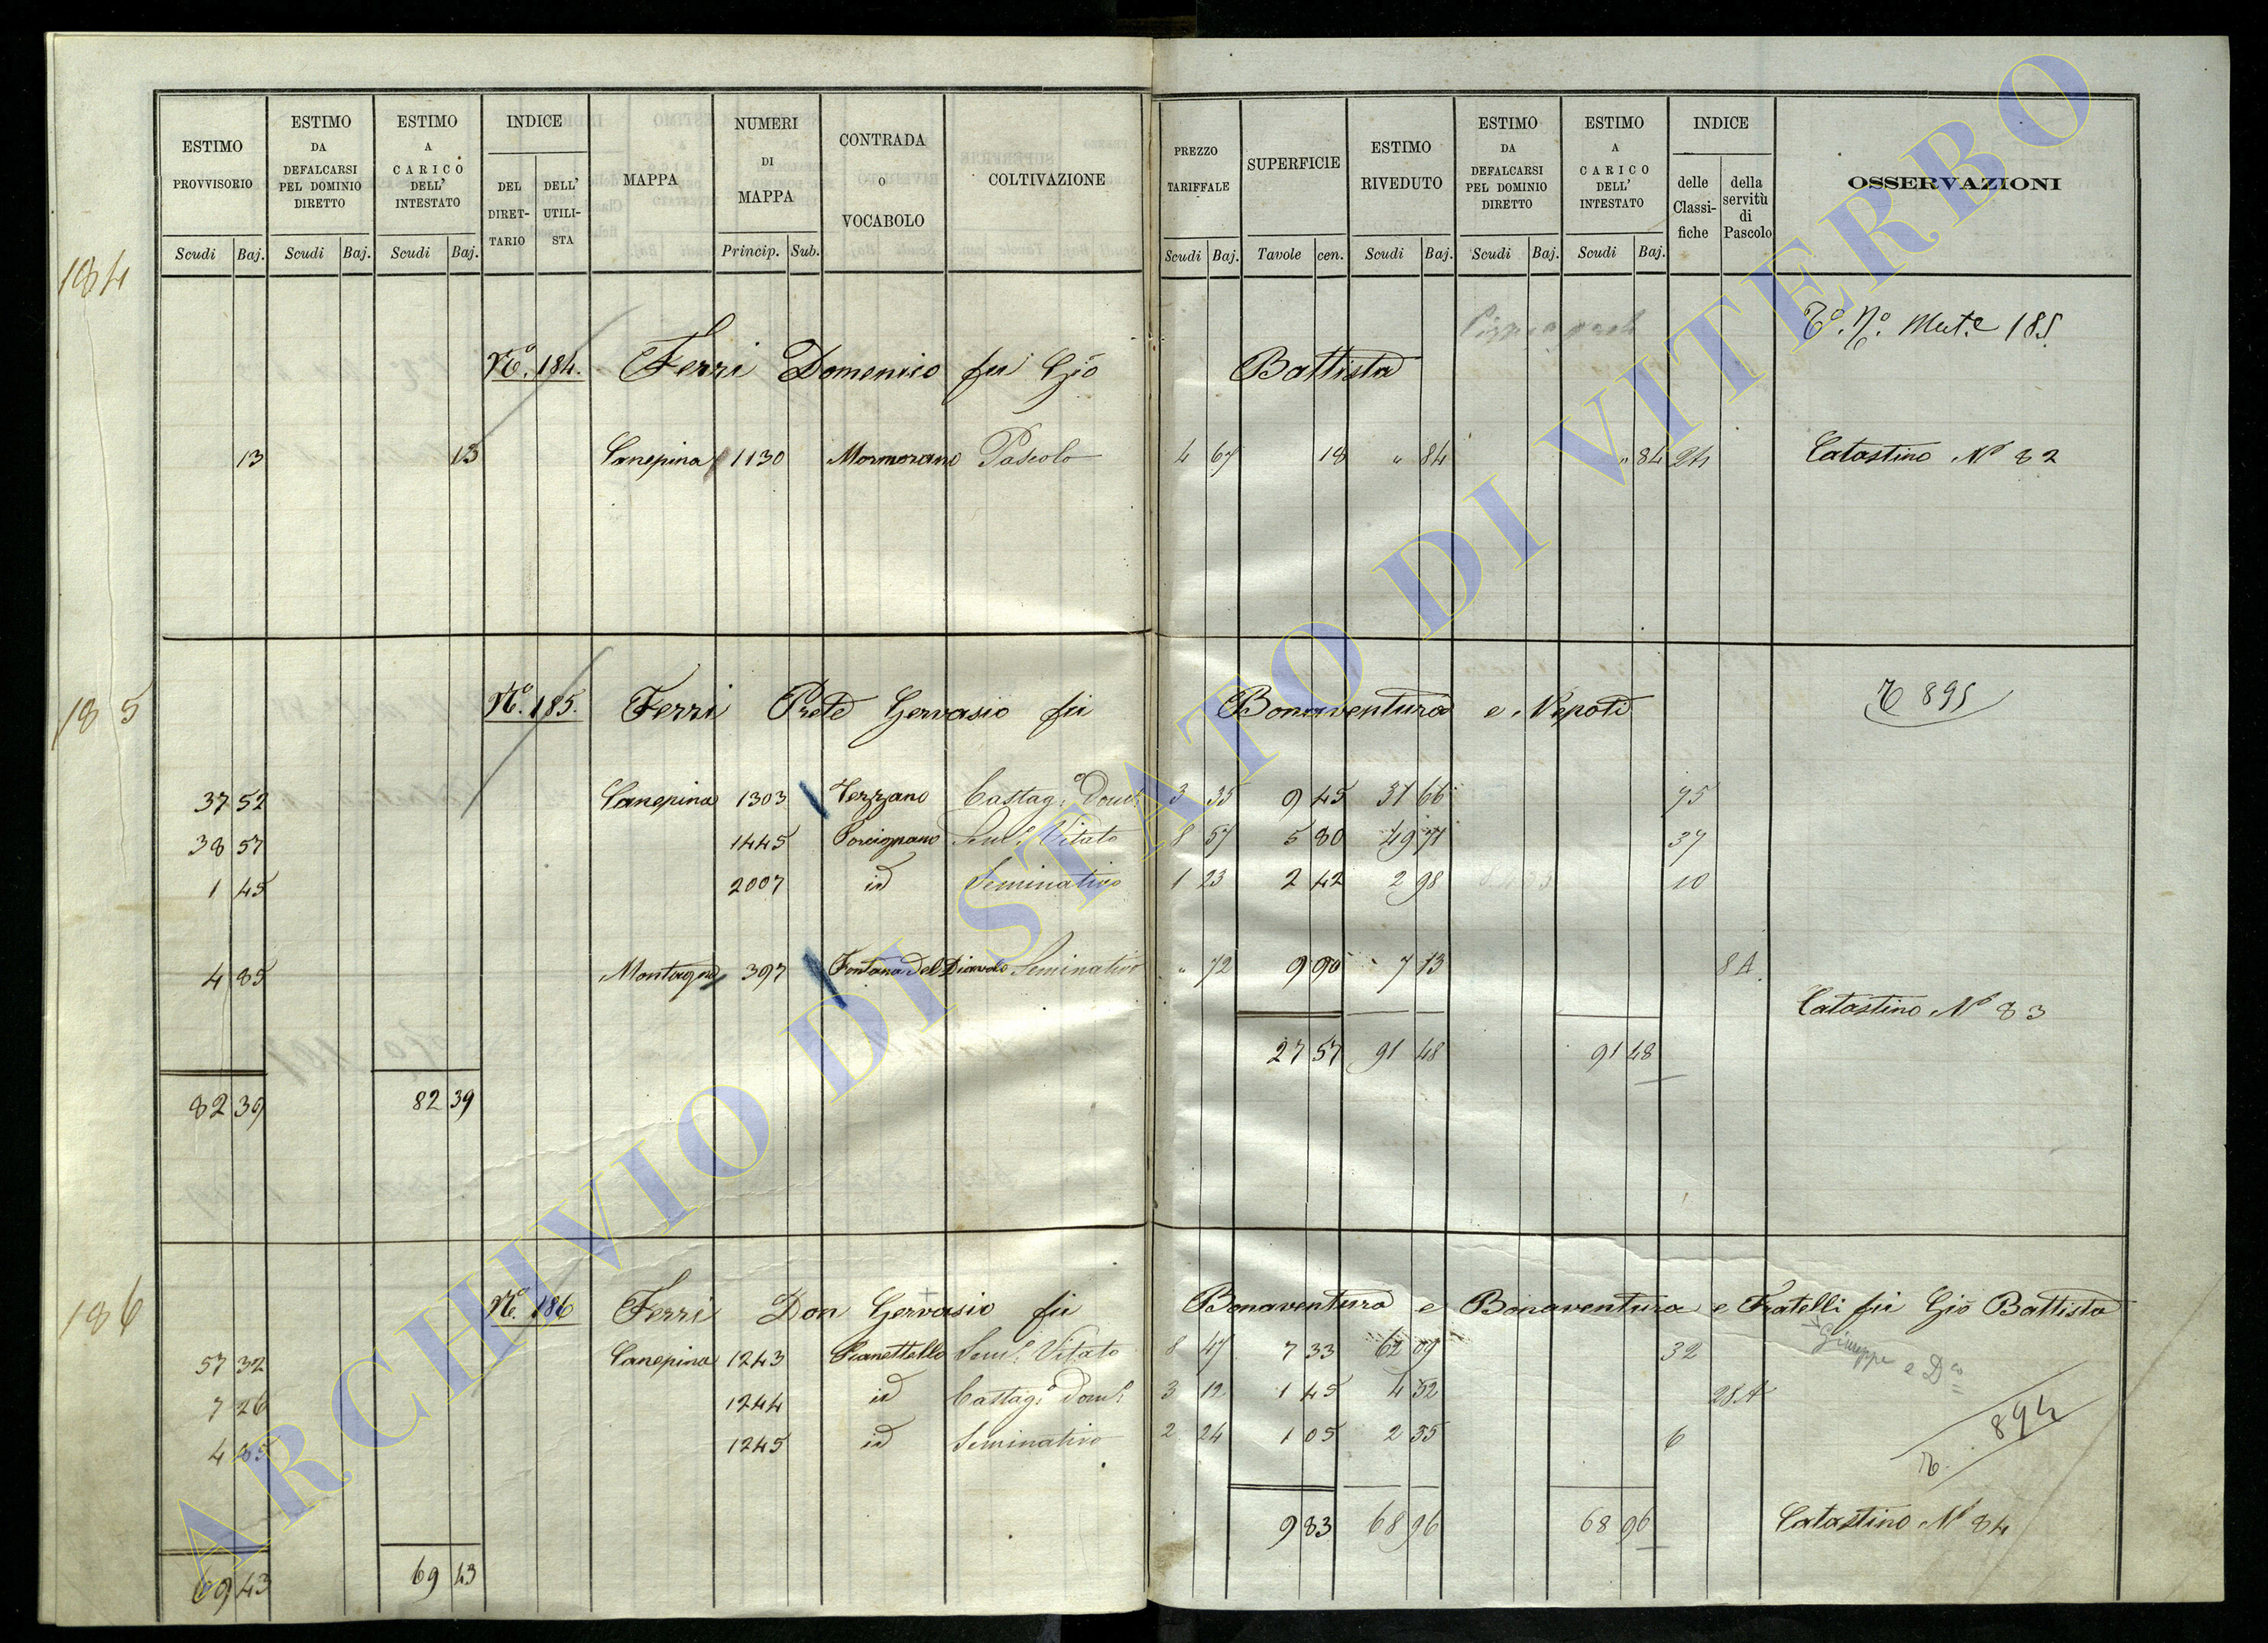 ESTIMO PROVVISORIO
ESTIMO DA DEFALCARSI PEL DOMINIO DIRETTO
ESTIMO A CARICO DELL' INTESTATO
INDICE
DEL DIRET-TARIO
DELL' UTILI-STA
MAPPA
NUMERI DI MAPPA
CONTRADA O VOCABOLO
COLTIVAZIONE
PREZZO TARIFFALE
SUPERFICIE
ESTIMO RIVEDUTO
ESTIMO DA DEFALCARSI PEL DOMINIO DIRETTO
ESTIMO A CARICO DELL' INTESTATO
INDICE
delle Classi-fiche
della servitù di Pascolo
OSSERVAZIONI
Scudi Baj. Scudi Baj. Scudi Baj. Princip. Sub. Scudi Baj. Tavole cen. Scudi Baj. Scudi Baj. Scudi Baj.
184
Nº. 184. Ferri Domenico fu Gio Battista Tº. Nº. Mut.e 185
13 13 Canepina 1130 Mormorano Pascolo 4 67 18 " 84 " 84 24 Catastino Nº 82
185
Nº. 185. Ferri Prete Gervasio fu Bonaventura e Nepoti 895
37 52 Canepina 1303 Vezzano Castag.o Dom. 3 35 9 45 31 66 75
38 57 1445 Porcignano Sem. Vitato 8 57 5 80 49 71 37
1 45 2007 id Seminativo 1 23 2 42 2 98 10
4 85 Montagna 397 Fontana del Diavolo Seminativo " 72 9 90 7 13 8A
Catastino Nº 83
27 57 91 48 91 48
82 39 82 39
186
Nº. 186 Ferri Don Gervasio fu Bonaventura e Bonaventura e Fratelli fu Gio Battista
Giuseppe e D.co
57 32 Canepina 1243 Pianettello Sem. Vitato 8 47 7 33 62 09 32
7 26 1244 id Castag. Dom. 3 12 1 45 4 52 28A
4 85 1245 id Seminativo 2 24 1 05 2 35 6
894
9 83 68 96 68 96 Catastino Nº 84
69 43 69 43
ARCHIVIO DI STATO DI VITERBO